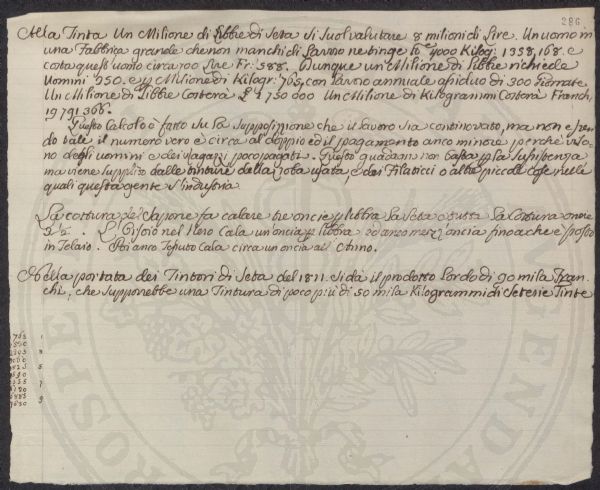 286
Alla Tinta Un Milione di Libbre di Seta si suol valutare 8 milioni di Lire. Un uomo in
una Fabbrica grande che non manchi di Lavoro ne tinge lb 4000 Kilog: 1358,168. e
costa quest' uomo circa 700 Lire Fr: 588. Dunque un Milione di Libbre richiede
Uomini 250. e un Milione di Kilogr: 765, con lavoro annuale assiduo di 300 Giornate
Un Milione di Libbre Costerà L 1750000 Un Milione di Kilogrammi Costerà Franchi
19791366.
Questo Calcolo è fatto su la supposizione che il lavoro sia continovato, ma non essen
do tale il numero vero è circa al doppio ed il pagamento anco minore perchè vi so
no degli uomini e dei ragazzi poco pagati. Questo guadagno non basta per la sussistenza
ma viene supplito dalle tinture della roba usata, e dai Filaticci o altre piccole cose nelle
quali questa gente s'industria.
La cottura del Sapone fa calare tre oncie per libbra la Seta a tutta la Cottura oncie
2½. L' nel Nero Cala un'oncia per libbra ed anco mezz'oncia fino a che è posto
in Telaio. Poi anco Tessuto Cala circa un'oncia all' Anno.
Nella portata dei Tintori di Seta del 1811. si dà il prodotto Lordo di 90 mila Fran
chi, che supporrebbe una Tintura di poco più di 50 mila Kilogrammi di Seterie Tinte
PROSPER